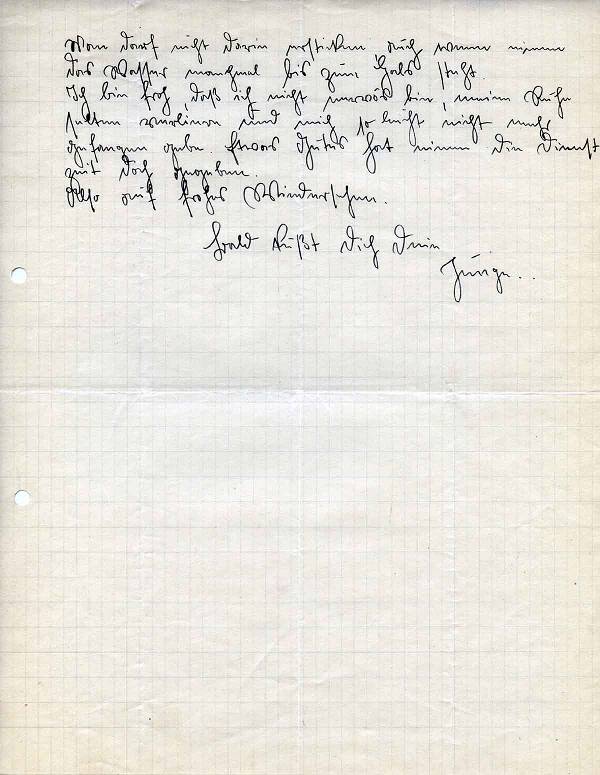 Man darf nicht darin ersticken, auch wenn einem
das Wasser manchmal bis zum Hals steht.
Ich bin froh, daß ich nicht nervös bin, meine Ruhe
selten verliere und mich so leicht nicht mehr
gefangen gebe. Etwas Gutes hat einem die Dienst
zeit doch gegeben.
Also auf frohes Wiedersehen.
Bald küßt Dich Dein
Junge..